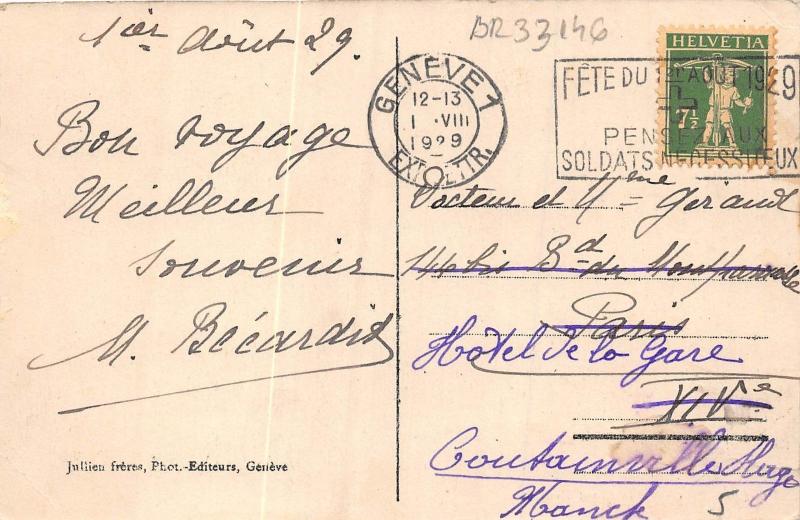 1er Août 29.
Bon voyage
Meilleur
Souvenir
M. Bécardit
Jullien frères, Phot.-Editeurs, Genève
BR33146
GENÈVE 1
12-13
1 VIII
1929
EXP. LETTR.
HELVETIA
7½
FÊTE DU 1er AOUT 1929
PENSEZ AUX
SOLDATS NECESSITEUX
Docteur et Mme Geraud
146 bis Bd du Montparnasse
Paris
Hôtel de la Gare
XIVe
Coutainville
Manch
5